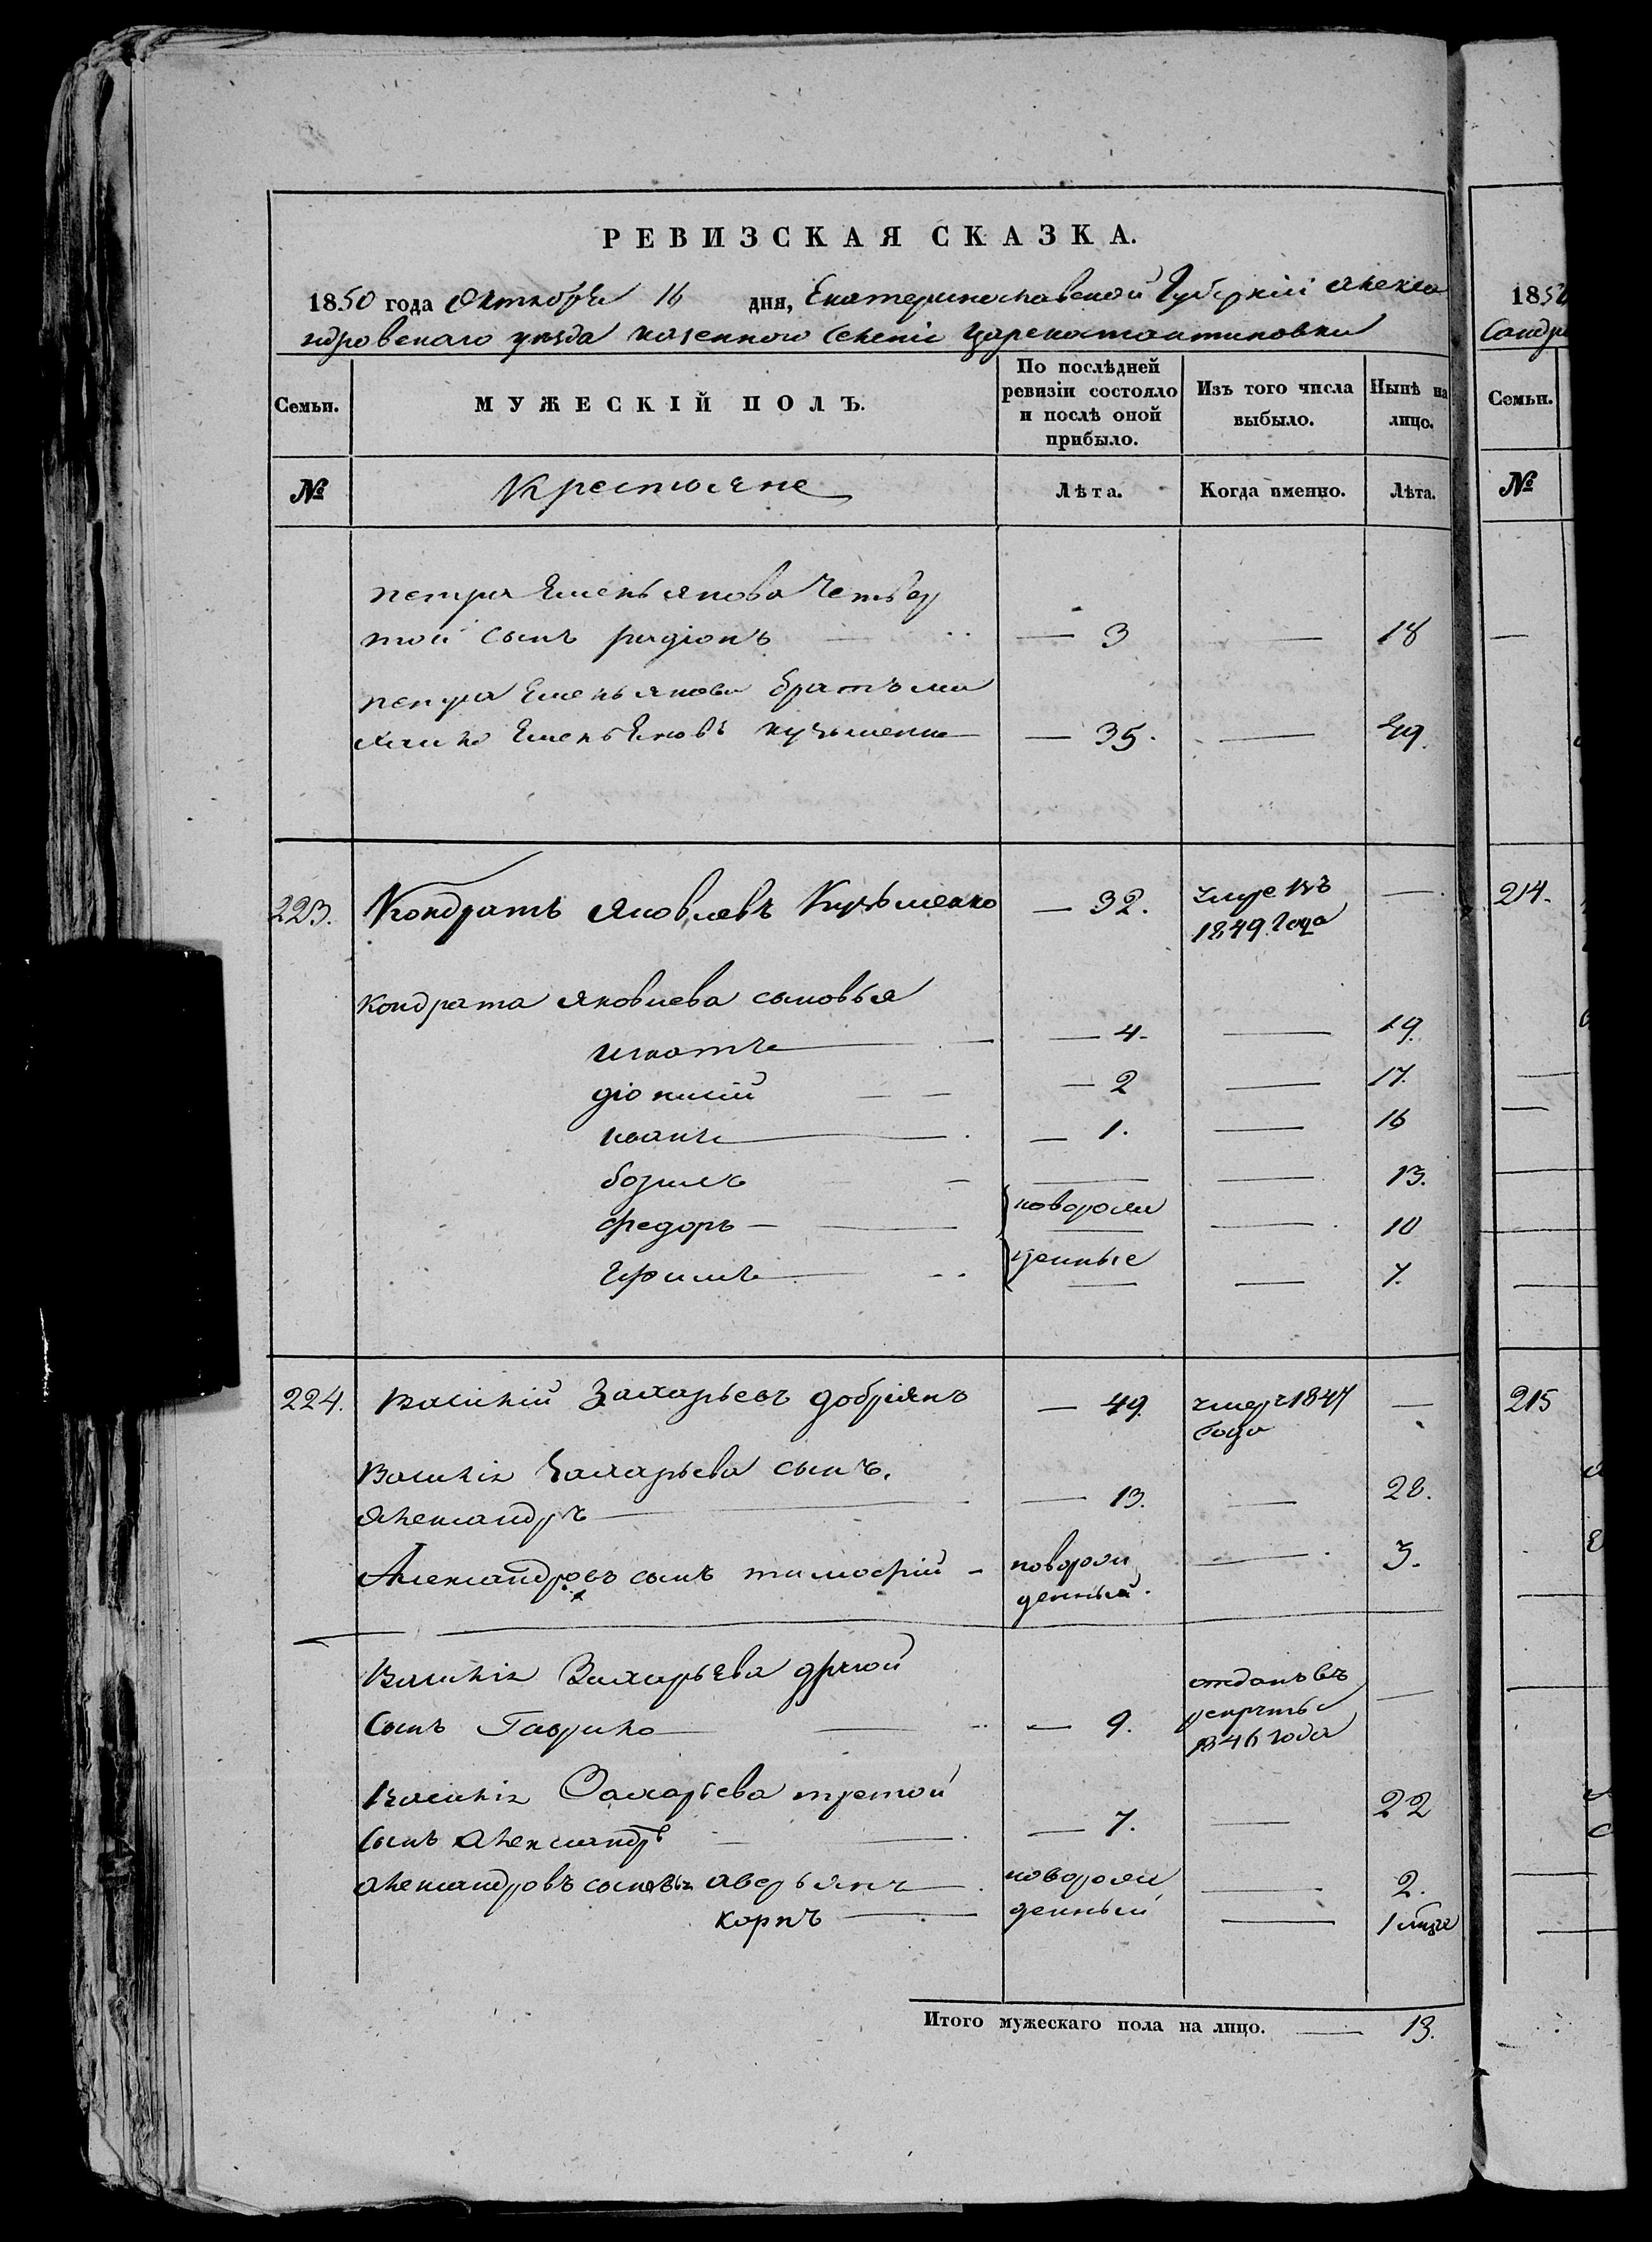 РЕВИЗСКАЯ СКАЗКА.
1850 года Октября 16 дня, Екатеринославской Губернии Алекса
ндровскаго уезда казенного Селенія Цареконстантиновки
Семьи.
МУЖЕСКІЙ ПОЛЪ.
По послѣдней ревизіи состояло и послѣ оной прибыло.
Изъ того числа выбыло.
Нынѣ на лицо.
№
Крестьяне
Лѣта.
Когда именно.
Лѣта.
петра Емельянова Четвер
той сынъ радіонъ — 3 — 18
петра Емельянова братъ ми
хайло Емельяновъ кузьменко — 35. — 49.
223. Кондратъ Яковлевъ Кузьменко — 32. умре въ —
1849. года
Кондрата Яковлева сыновья
игнатъ — 4. — 19.
діонисій — 2 — 17.
иванъ — 1. — 16
— 13.
федоръ — новорож — 10
ефимъ — денные — 7.
224. Василій Захарьевъ добріянъ — 49. умеръ 1847 —
года
Василія Захарьева сынъ.
Александръ — 13. — 28.
Александровъ сынъ тимофій — новорож — 3.
денный.
Василія Захарьева другой отданъ въ —
сынъ Гаврило — 9. рекруты
1846 года
Василія Захарьева третой 22
сынъ Александръ — 7. —
Александровъ сыновья аверьянъ — новорож — 2.
карпъ — денный — 1
Итого мужескаго пола на лицо. — 13.
185
Сандро
Семьи.
№
214.
215